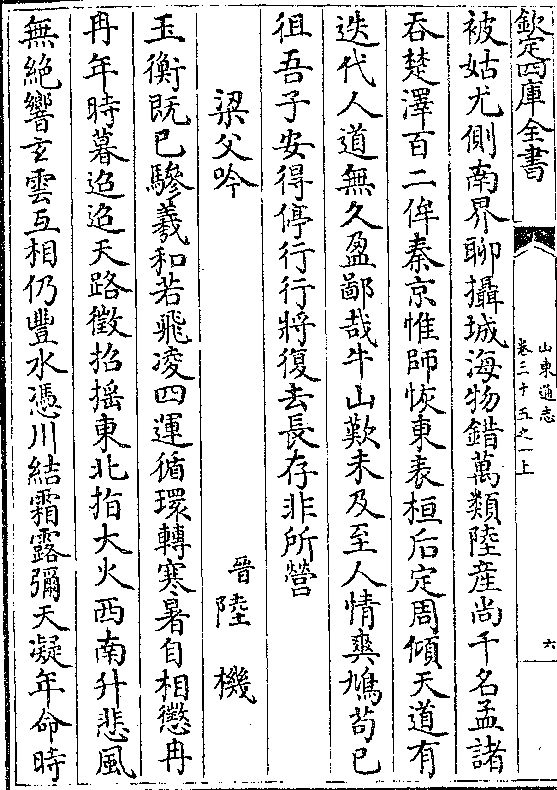 欽定四庫全書
山東通志
卷三十五之一上
六
被姑尤側南界聊攝城海物錯萬類陸産尚千名孟諸
吞楚澤百二侔秦京惟師恢東表桓后定周傾天道有
迭代人道無久盈鄙哉牛山歎未及至人情爽鳩苟已
徂吾子安得停行行將復去長存非所營
梁父吟
晉陸機
玉衡既已驂羲和若飛凌四運循環轉寒暑自相懲冉
冉年時暮迢迢天路徵招揺東北指大火西南升悲風
無絶響𤣥雲互相仍豐水憑川結霜露彌天凝年命時